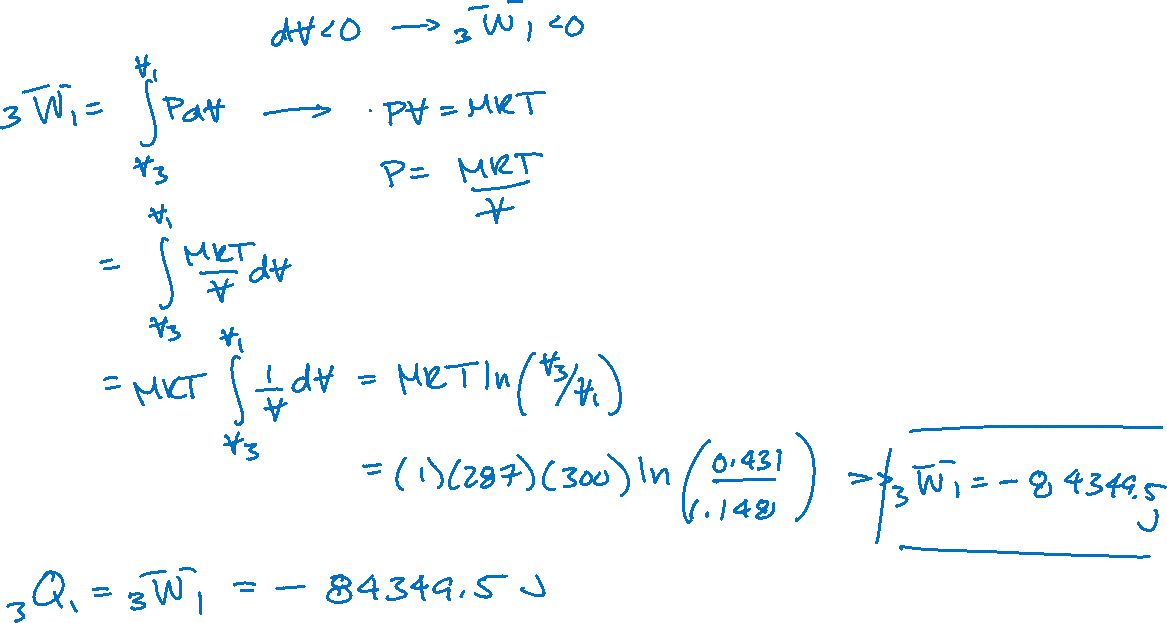 dV<0 → ₃W₁<0
₃W₁ = ∫_{V₃}^{V₁} PdV → · PV = MRT
P = MRT/V
= ∫_{V₃}^{V₁} MRT/V dV
= MRT ∫_{V₃}^{V₁} 1/V dV = MRT ln(V₃/V₁)
= (1)(287)(300) ln(0.431/1.148) => ₃W₁ = -84349.5 J
₃Q₁ = ₃W₁ = -84349.5 J